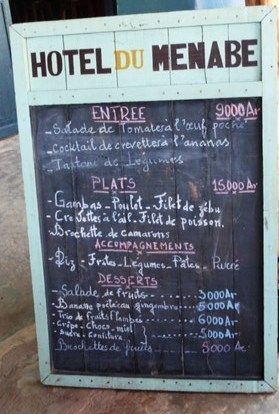 HOTEL DU MENABE
ENTREE 9000Ar
- Salade de Tomates à l'œuf poché
- Cocktail de crevettes à l'ananas
- Tartare de Légumes
PLATS 15.000Ar
- Gambas - Poulet - Filet de zébu
- Crevettes à l'ail - Filet de poisson.
- Brochette de camarons
ACCOMPAGNEMENTS
- Riz - Frites - Légumes - Pâtes - Purée
DESSERTS
- Salade de fruits 5000Ar
- Banane gingembre 5000Ar
- Trio de fruits flambés 6000Ar
- Crêpe - Choco - miel
- Sucre - Confiture 5000Ar
- Brochettes de fruits 5000 Ar